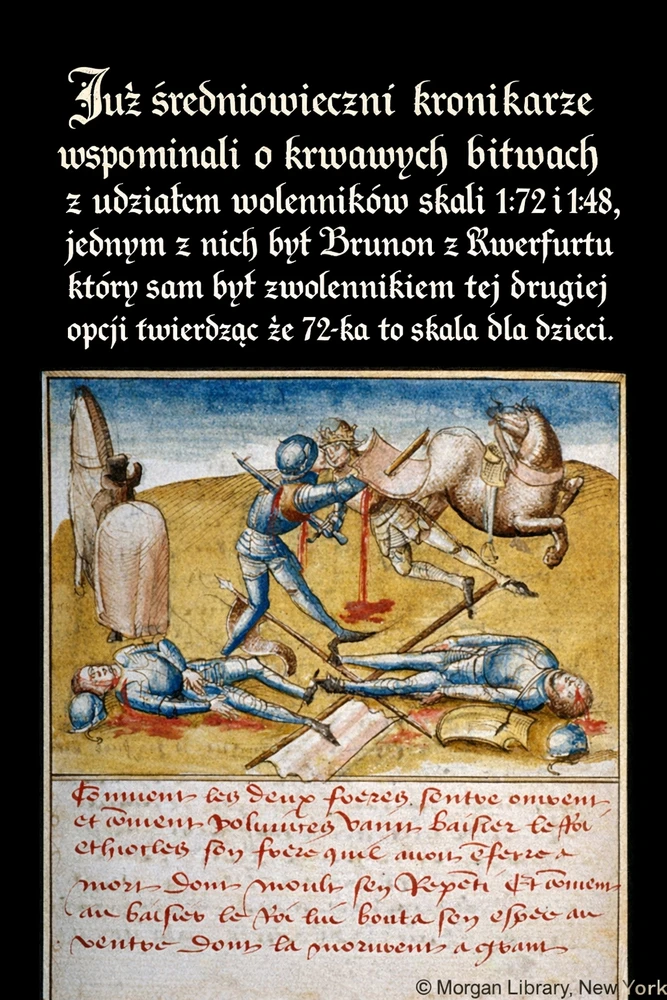 Już średniowieczni kronikarze
wspominali o krwawych bitwach
z udziałem wolenników skali 1:72 i 1:48,
jednym z nich był Brunon z Kwerfurtu
który sam był zwolennikiem tej drugiej
opcji twierdząc że 72-ka to skala dla dzieci.
Coment les deux freres sentre omirent
et coment polinices vanit baisier le Roi
ethiocles son frere quil auoit Eferre a
mort dont moult sen Repeti Et coment
au baisier le Roi lui bouta son espee au
ventre dont la moruvent a grant
© Morgan Library, New York